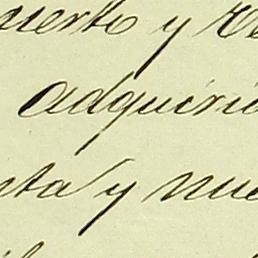 uerto y re
adquirió
cta y nue